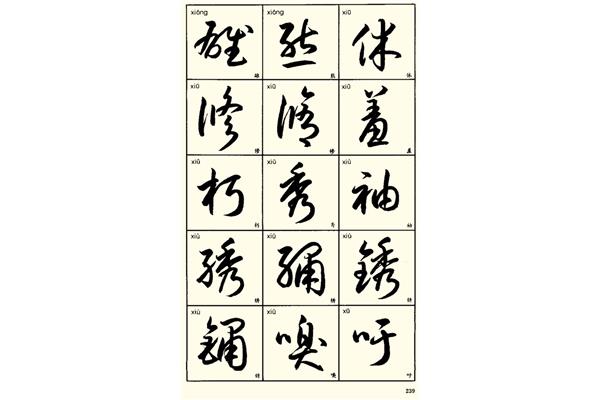 xióng xióng xiū
雄 熊 休
雄 熊 休
xiū xiū xiū
修 脩 羞
修 修 羞
xiǔ xiù xiù
朽 秀 袖
朽 秀 袖
xiù xiù xiù
绣 繡 銹
xiù xiù xū
鏽 嗅 吁
嗅 吁
239